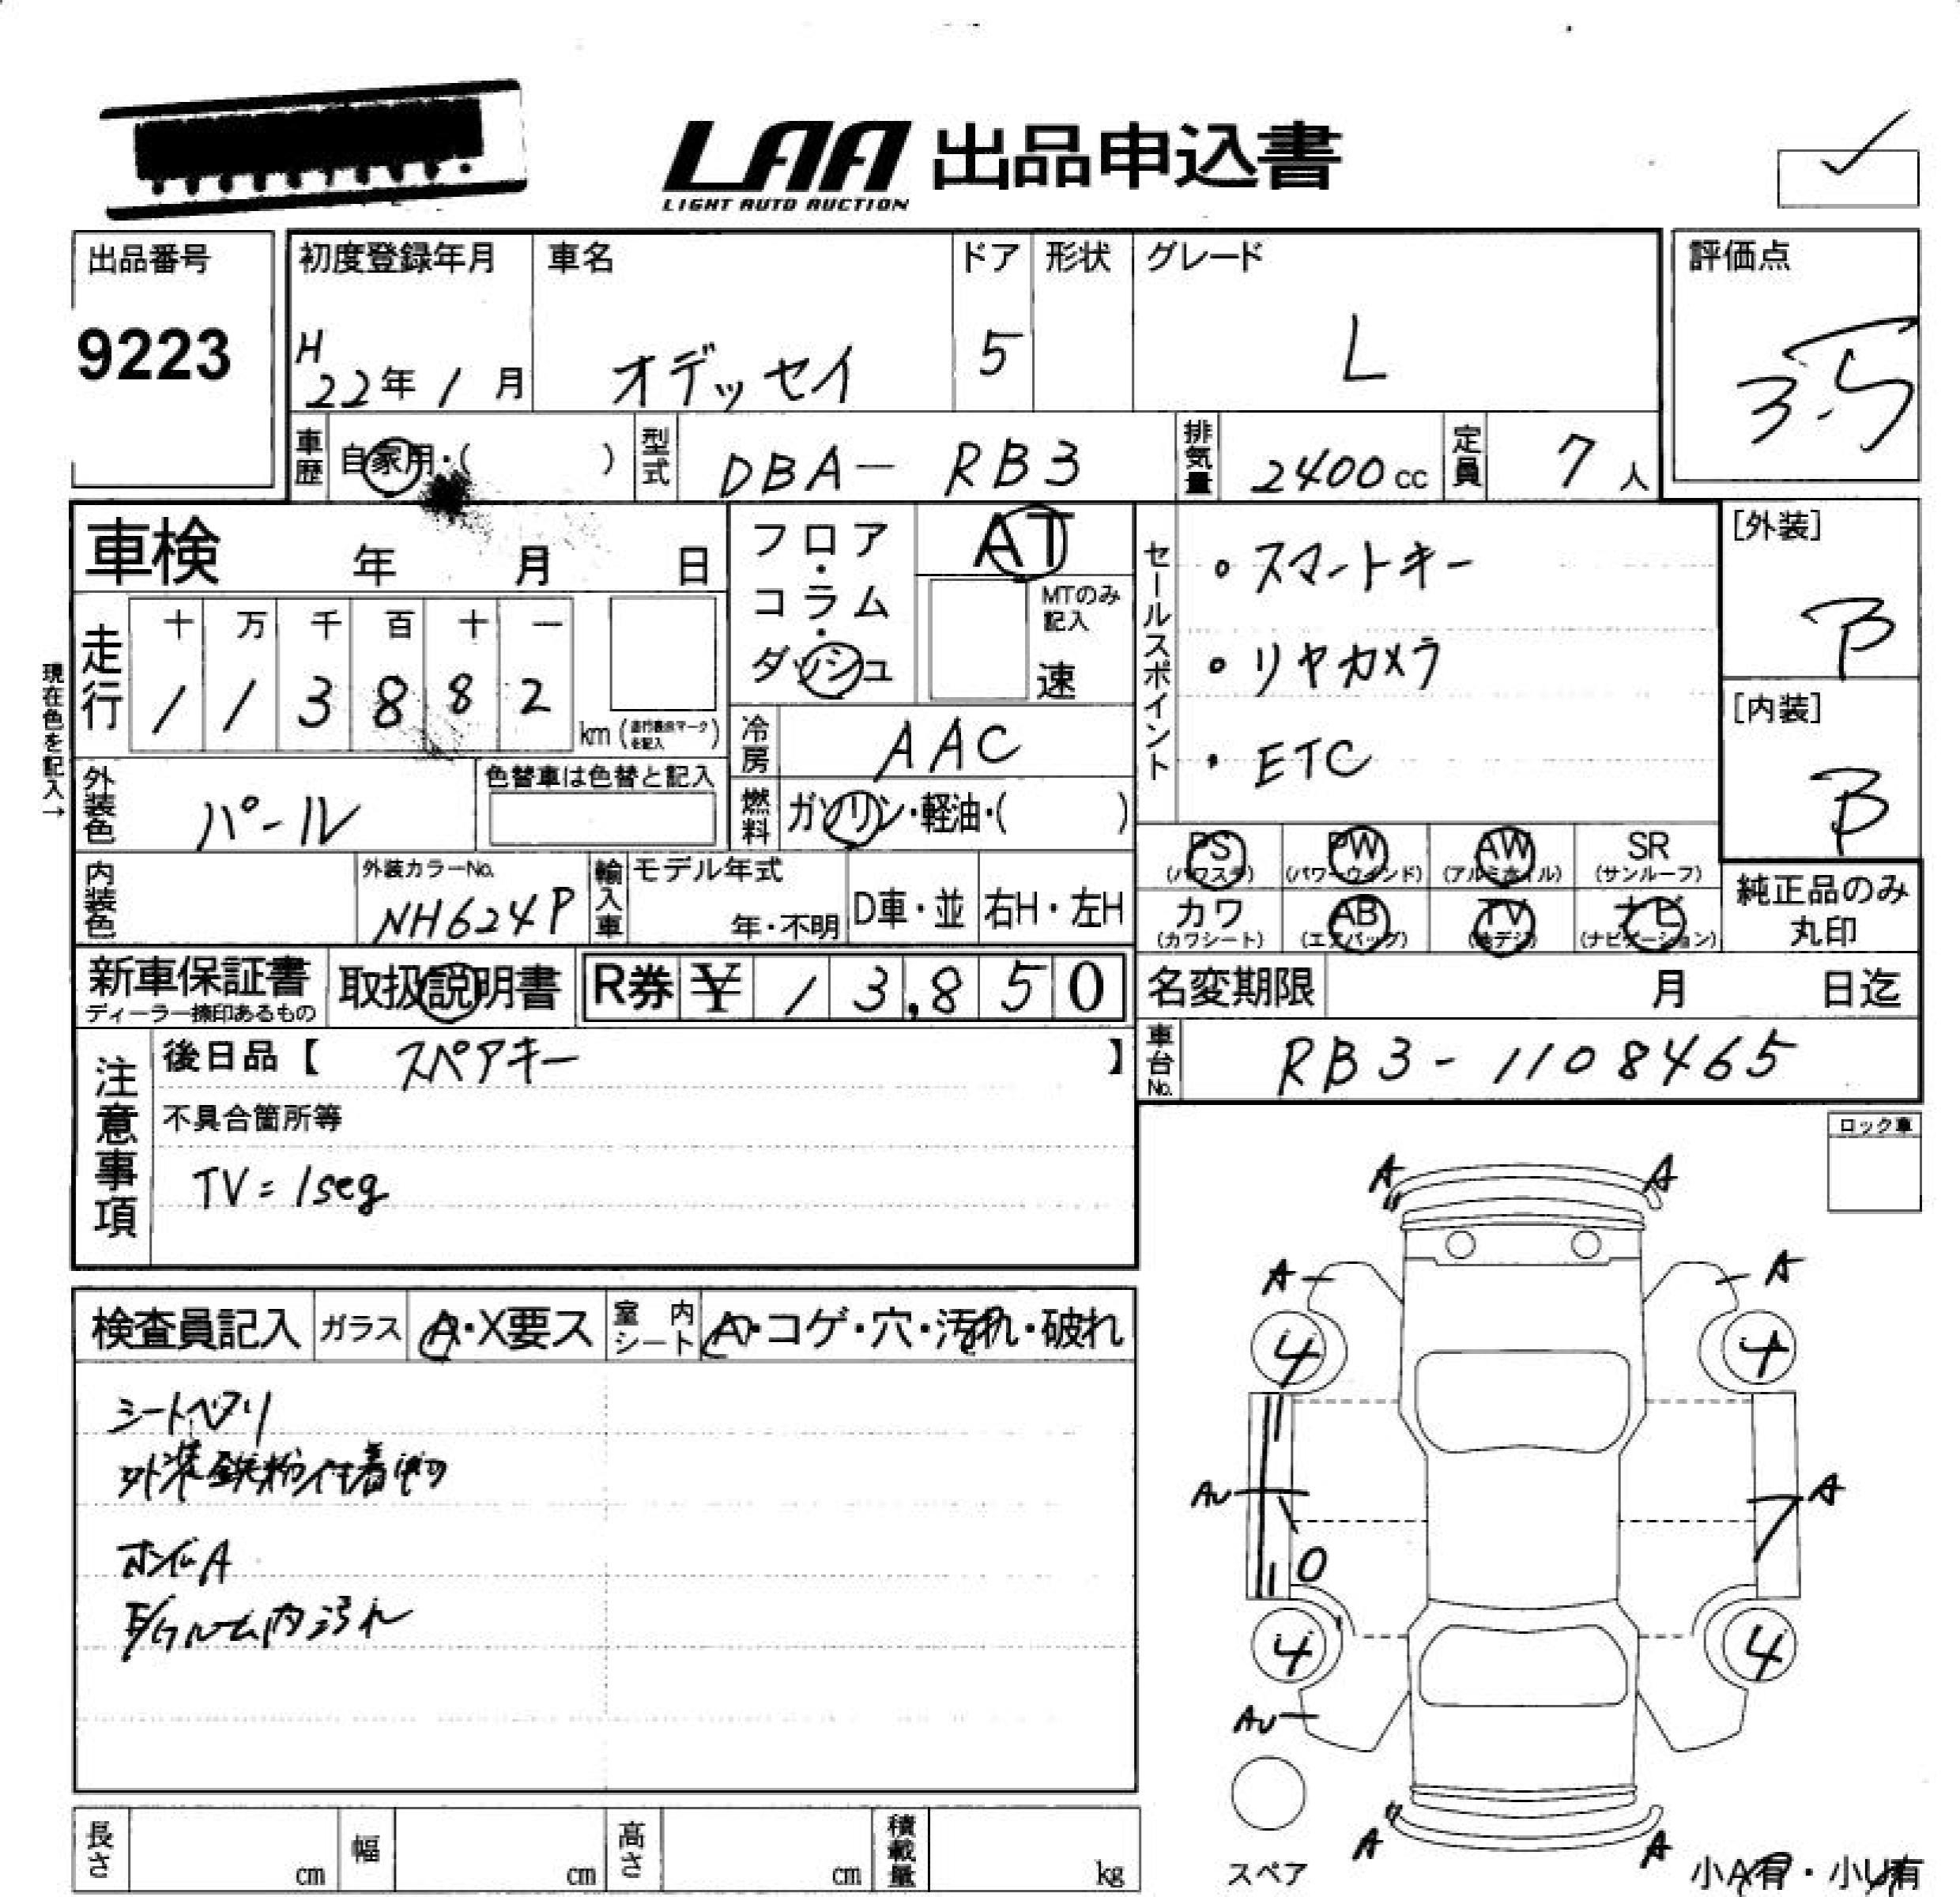 LAA 出品申込書
LIGHT AUTO AUCTION
出品番号
9223
初度登録年月
H
22年 1月
車名
オデッセイ
ドア
5
形状
グレード
L
評価点
3.5
車歴
自家用・( )
型式
DBA- RB3
排気量
2400cc
定員
7人
車検 年 月 日
フロア・コラム・ダッシュ
AT
MTのみ記入
速
セールスポイント
・スマートキー
・リヤカメラ
・ETC
[外装]
B
[内装]
B
現在色を記入→
走行
十 万 千 百 十 一
1 1 3 8 8 2
km(走行疑義マークを記入)
冷房
AAC
外装色
パール
色替車は色替と記入
燃料
ガソリン・軽油・( )
PS (パワステ)
PW (パワーウインド)
AW (アルミホイル)
SR (サンルーフ)
カワ (カワシート)
AB (エアバッグ)
TV (地デジ)
ナビ (ナビゲーション)
純正品のみ
丸印
内装色
外装カラーNo.
NH624P
輸入車
モデル年式
年・不明
D車・並
右H・左H
新車保証書
ディーラー捺印あるもの
取扱説明書
R券 ¥ 13,850
名変期限 月 日迄
車台No.
RB3-1108465
注意事項
後日品【 スペアキー 】
不具合箇所等
TV=1seg
ロック車
検査員記入
ガラス
A・X要ス
室内シート
A・コゲ・穴・汚れ・破れ
シートヘタリ
外装鉄粉付着
ホイルA
内汚れ
A A
A A
4 4
AU A
4 4
AU
A A
スペア
小A有・小U有
長さ cm
幅 cm
高さ cm
積載量 kg